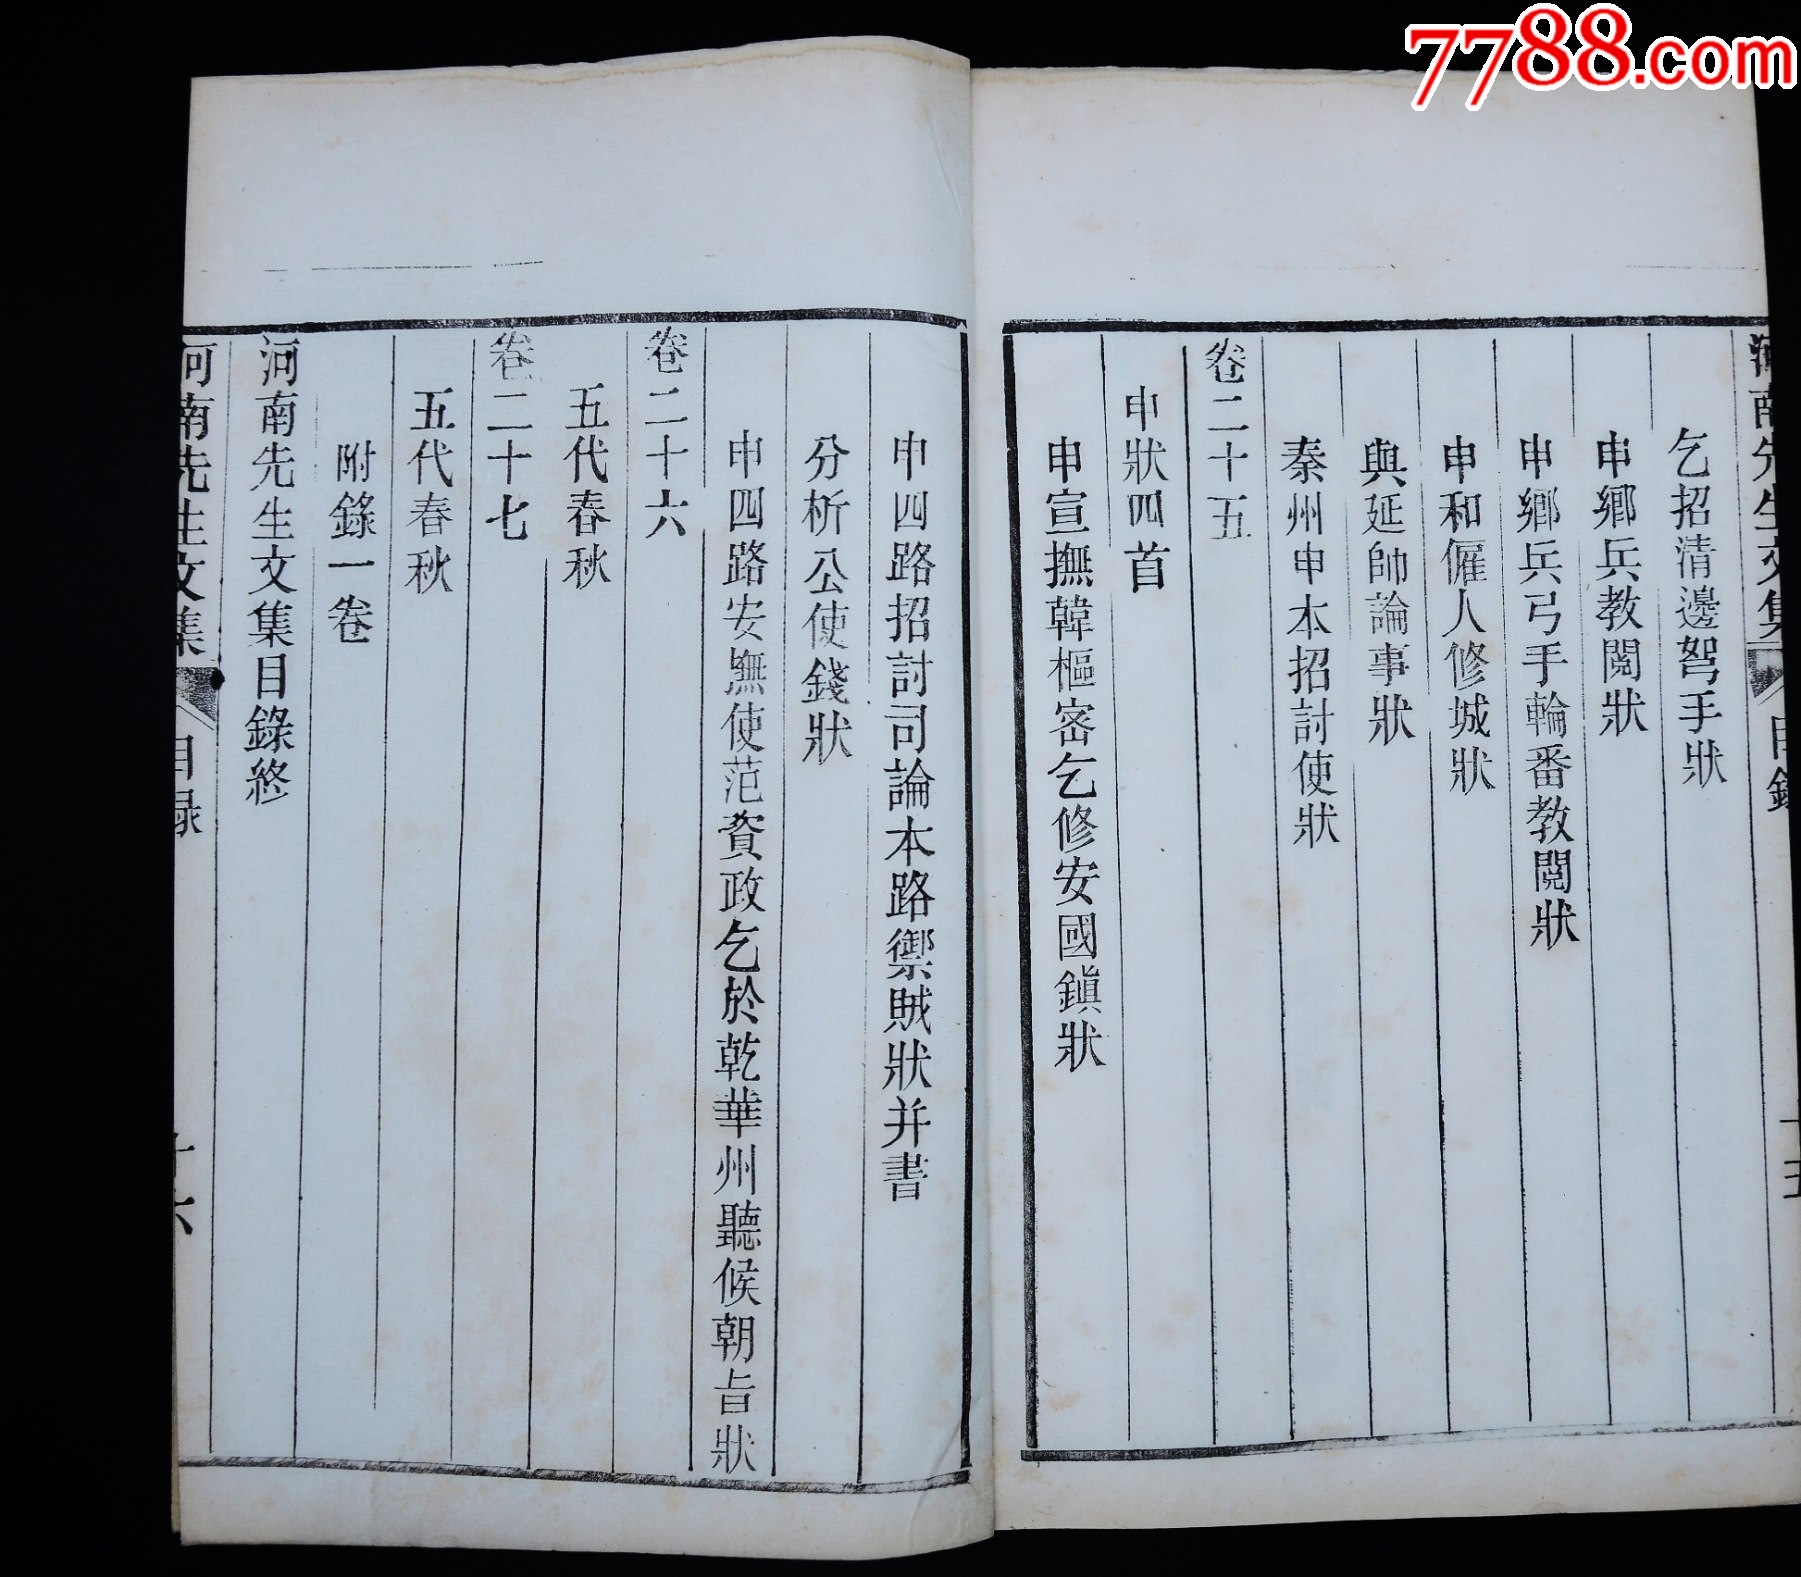 7788.com
河南先生文集
目錄
十五
乞招清邊弩手狀
申鄉兵教閱狀
申鄉兵弓手輪番教閱狀
申和僱人修城狀
與延帥論事狀
秦州申本招討使狀
卷二十五
申狀四首
申宣撫韓樞密乞修安國鎮狀
申四路招討司論本路禦賊狀并書
分析公使錢狀
申四路安撫使范資政乞於乾華州聽候朝旨狀
卷二十六
五代春秋
卷二十七
五代春秋
附錄一卷
河南先生文集目錄終
河南先生文集
目錄
十六